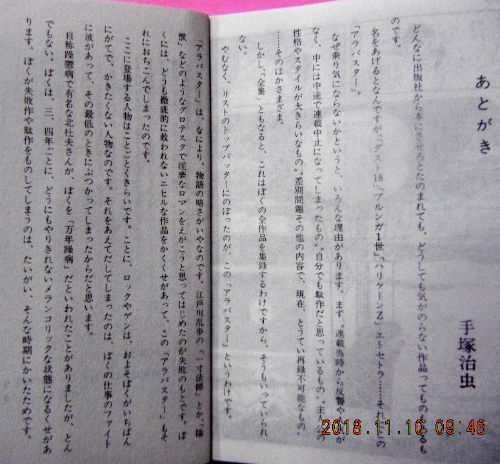 あとがき
手塚治虫
どんなに出版社から本にさせろとたのまれても、どうしても気がのらない作品ってものがあるも
のです。
名をあげるとなんですが、「ダスト18」「アルンガ1世」「ハリケーンZ」エトセトラ……それにこの
「アラバスター」。
なぜ乗り気にならないかというと、いろんな理由があります。まず、連載当時から反響や人気が
なく、中には中途で連載中止になってしまったもの。自分でも駄作だと思っているもの。主人公の
性格やスタイルが大きらいなもの。差別問題その他の内容で、現在、とうてい再録不可能なもの。
……そのほかさまざま。
しかし「全集」ともなると、これはぼくの全作品を集録するわけですから、そうもいっていられ
ない。
やむなく、リストのトップバッターにのぼったのが、この「アラバスター」というわけです。
「アラバスター」は、なにより、物語の暗さがいやなのです。江戸川乱歩の「一寸法師」とか、「陰
獣」などのようなグロテスクで淫靡なロマンをえがこうと思ってはじめたのが失敗のもとです。ぼ
くには、どうも徹底的に救われないニヒルな作品をかくくせがあって、この「アラバスター」もそ
れにおちこんでしまったのです。
ここに登場する人物はことごとくきらいです。ことに、ロックやゲンは、およそぼくがいちばん
にがてで、かきたくない人物なのです。それをあえてだしてしまったのは、ぼくの仕事のファイト
に波があって、その最低のときにぶつかってしまったからだと思います。
自称躁鬱病で有名な北杜夫さんが、ぼくを「万年躁病」だといわれたことがありましたが、とん
でもない、ぼくは、三、四年ごとに、どうにもやりきれないメランコリックな状態になるくせがあ
ります。ぼくが失敗作や駄作をものしてしまうのは、たいがい、そんな時期にかいたためです。
2018.11.10 09:46